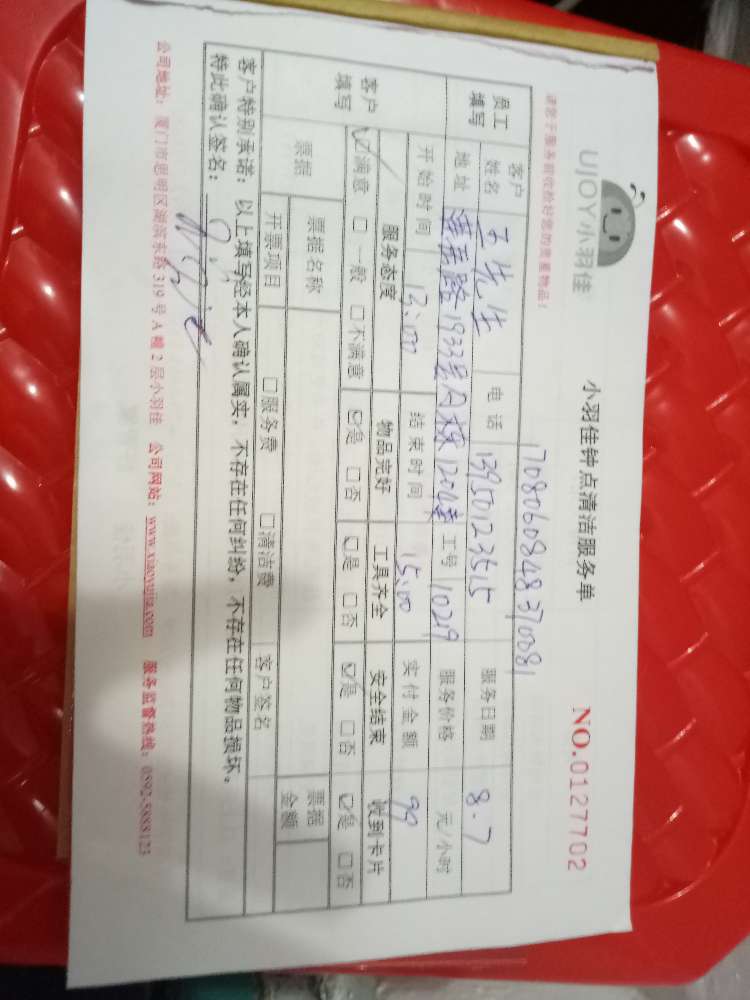 UJOY小羽佳
小羽佳钟点清洁服务单
NO.0127702
请您于服务前收捡好您的贵重物品！
1708060848370081
员工填写 客户姓名 王先生 电话 13950123515 服务日期 8.7
地址 1933号 工号 10219 服务价格 元/小时
客户填写 开始时间 12:00 结束时间 15:00 实付金额 99
服务态度 物品完好 工具齐全 安全结束 收到卡片
☑满意 □一般 □不满意 ☑是 □否 ☑是 □否 ☑是 □否 ☑是 □否
票据 票据名称 票据金额
开票项目 □服务费 □清洁费 客户签名
客户特别承诺：以上填写经本人确认属实，不存在任何纠纷，不存在任何物品损坏。
特此确认签名：
公司地址：厦门市思明区湖滨东路319号A幢2层小羽佳 公司网站：www.xiaoyujia.com 服务监督热线：0592-5888123